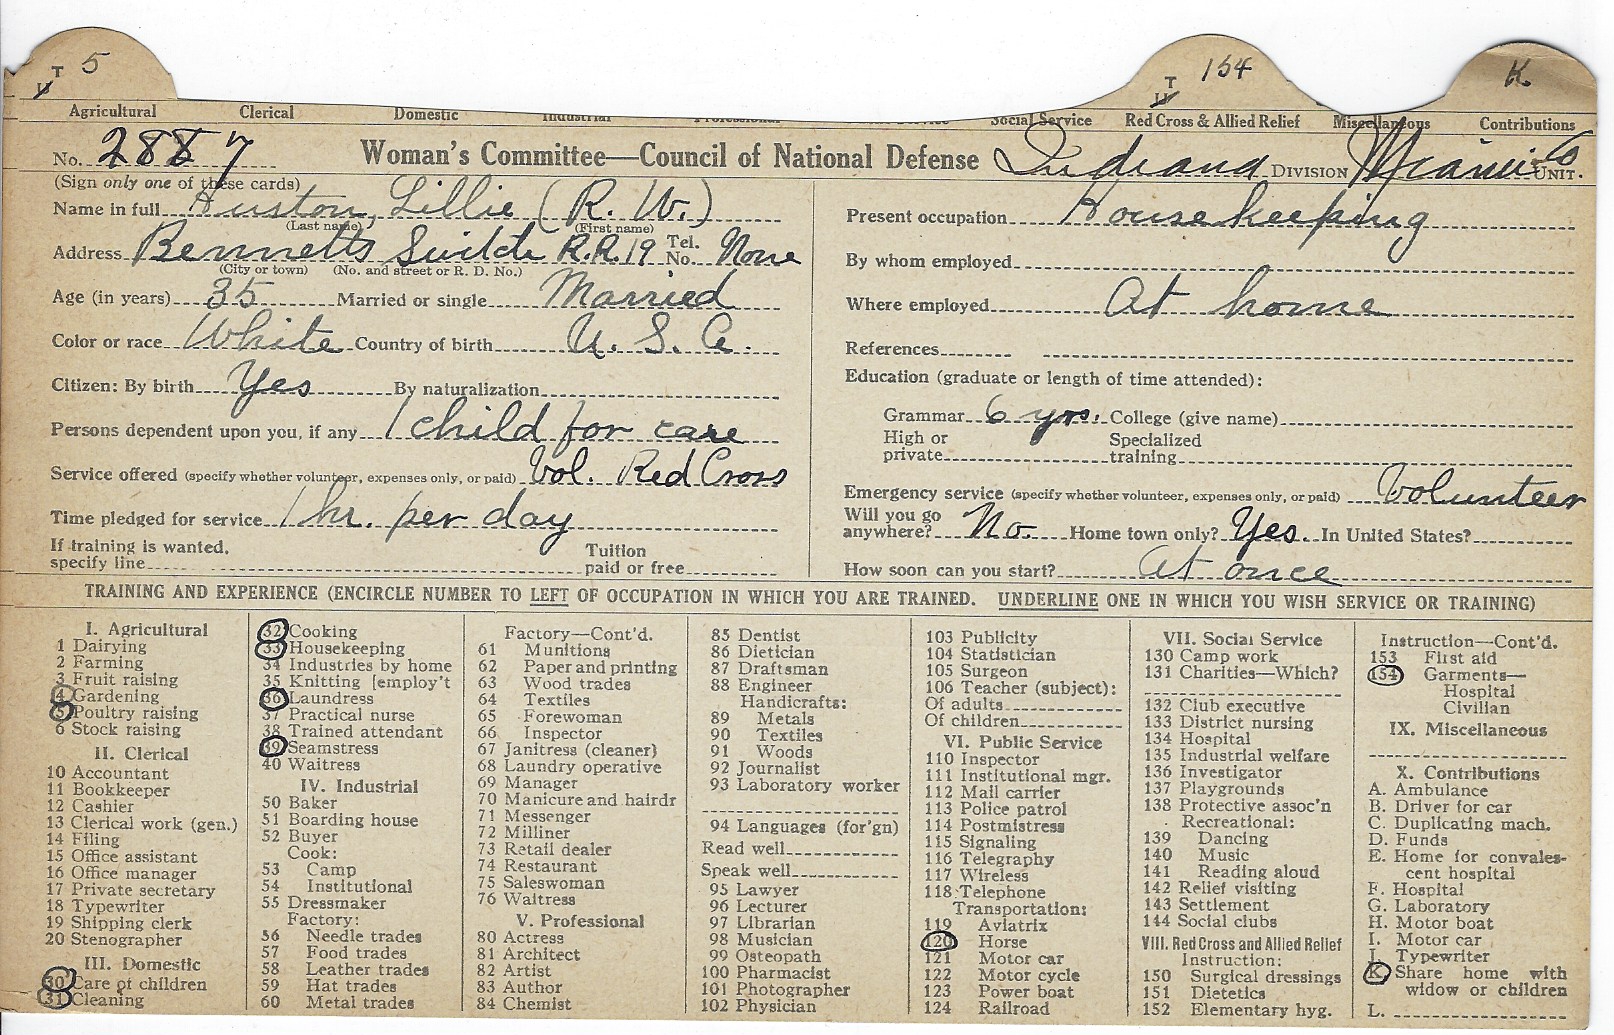 T 5
U
T 154
U
K
Agricultural Clerical Domestic Industrial Professional Service Social Service Red Cross & Allied Relief Miscellaneous Contributions
No. 2887 Woman's Committee—Council of National Defense Indiana DIVISION Miami Co UNIT.
(Sign only one of these cards)
Name in full Huston, Lillie (R. W.)
(Last name) (First name)
Address Bennetts Switch R.R. 19 Tel. No. None
(City or town) (No. and street or R. D. No.)
Age (in years) 35 Married or single Married
Color or race White Country of birth U. S. A.
Citizen: By birth Yes By naturalization
Persons dependent upon you, if any 1 child for care
Service offered (specify whether volunteer, expenses only, or paid) Vol. Red Cross
Time pledged for service 1 hr. per day
If training is wanted, specify line Tuition paid or free
Present occupation Housekeeping
By whom employed
Where employed At home
References
Education (graduate or length of time attended):
Grammar 6 yrs. College (give name)
High or private Specialized training
Emergency service (specify whether volunteer, expenses only, or paid) Volunteer
Will you go anywhere? No. Home town only? Yes. In United States?
How soon can you start? At once
TRAINING AND EXPERIENCE (ENCIRCLE NUMBER TO LEFT OF OCCUPATION IN WHICH YOU ARE TRAINED. UNDERLINE ONE IN WHICH YOU WISH SERVICE OR TRAINING)
I. Agricultural
1 Dairying
2 Farming
3 Fruit raising
4 Gardening
5 Poultry raising
6 Stock raising
II. Clerical
10 Accountant
11 Bookkeeper
12 Cashier
13 Clerical work (gen.)
14 Filing
15 Office assistant
16 Office manager
17 Private secretary
18 Typewriter
19 Shipping clerk
20 Stenographer
III. Domestic
30 Care of children
31 Cleaning
32 Cooking
33 Housekeeping
34 Industries by home
35 Knitting [employ't
36 Laundress
37 Practical nurse
38 Trained attendant
39 Seamstress
40 Waitress
IV. Industrial
50 Baker
51 Boarding house
52 Buyer
Cook:
53 Camp
54 Institutional
55 Dressmaker
Factory:
56 Needle trades
57 Food trades
58 Leather trades
59 Hat trades
60 Metal trades
Factory—Cont'd.
61 Munitions
62 Paper and printing
63 Wood trades
64 Textiles
65 Forewoman
66 Inspector
67 Janitress (cleaner)
68 Laundry operative
69 Manager
70 Manicure and hairdr
71 Messenger
72 Milliner
73 Retail dealer
74 Restaurant
75 Saleswoman
76 Waitress
V. Professional
80 Actress
81 Architect
82 Artist
83 Author
84 Chemist
85 Dentist
86 Dietician
87 Draftsman
88 Engineer
Handicrafts:
89 Metals
90 Textiles
91 Woods
92 Journalist
93 Laboratory worker
94 Languages (for'gn)
Read well
Speak well
95 Lawyer
96 Lecturer
97 Librarian
98 Musician
99 Osteopath
100 Pharmacist
101 Photographer
102 Physician
103 Publicity
104 Statistician
105 Surgeon
106 Teacher (subject):
Of adults
Of children
VI. Public Service
110 Inspector
111 Institutional mgr.
112 Mail carrier
113 Police patrol
114 Postmistress
115 Signaling
116 Telegraphy
117 Wireless
118 Telephone
Transportation:
119 Aviatrix
120 Horse
121 Motor car
122 Motor cycle
123 Power boat
124 Railroad
VII. Social Service
130 Camp work
131 Charities—Which?
132 Club executive
133 District nursing
134 Hospital
135 Industrial welfare
136 Investigator
137 Playgrounds
138 Protective assoc'n
Recreational:
139 Dancing
140 Music
141 Reading aloud
142 Relief visiting
143 Settlement
144 Social clubs
VIII. Red Cross and Allied Relief
Instruction:
150 Surgical dressings
151 Dietetics
152 Elementary hyg.
Instruction—Cont'd.
153 First aid
154 Garments—
Hospital
Civilian
IX. Miscellaneous
X. Contributions
A. Ambulance
B. Driver for car
C. Duplicating mach.
D. Funds
E. Home for convales-
cent hospital
F. Hospital
G. Laboratory
H. Motor boat
I. Motor car
J. Typewriter
K. Share home with
widow or children
L.